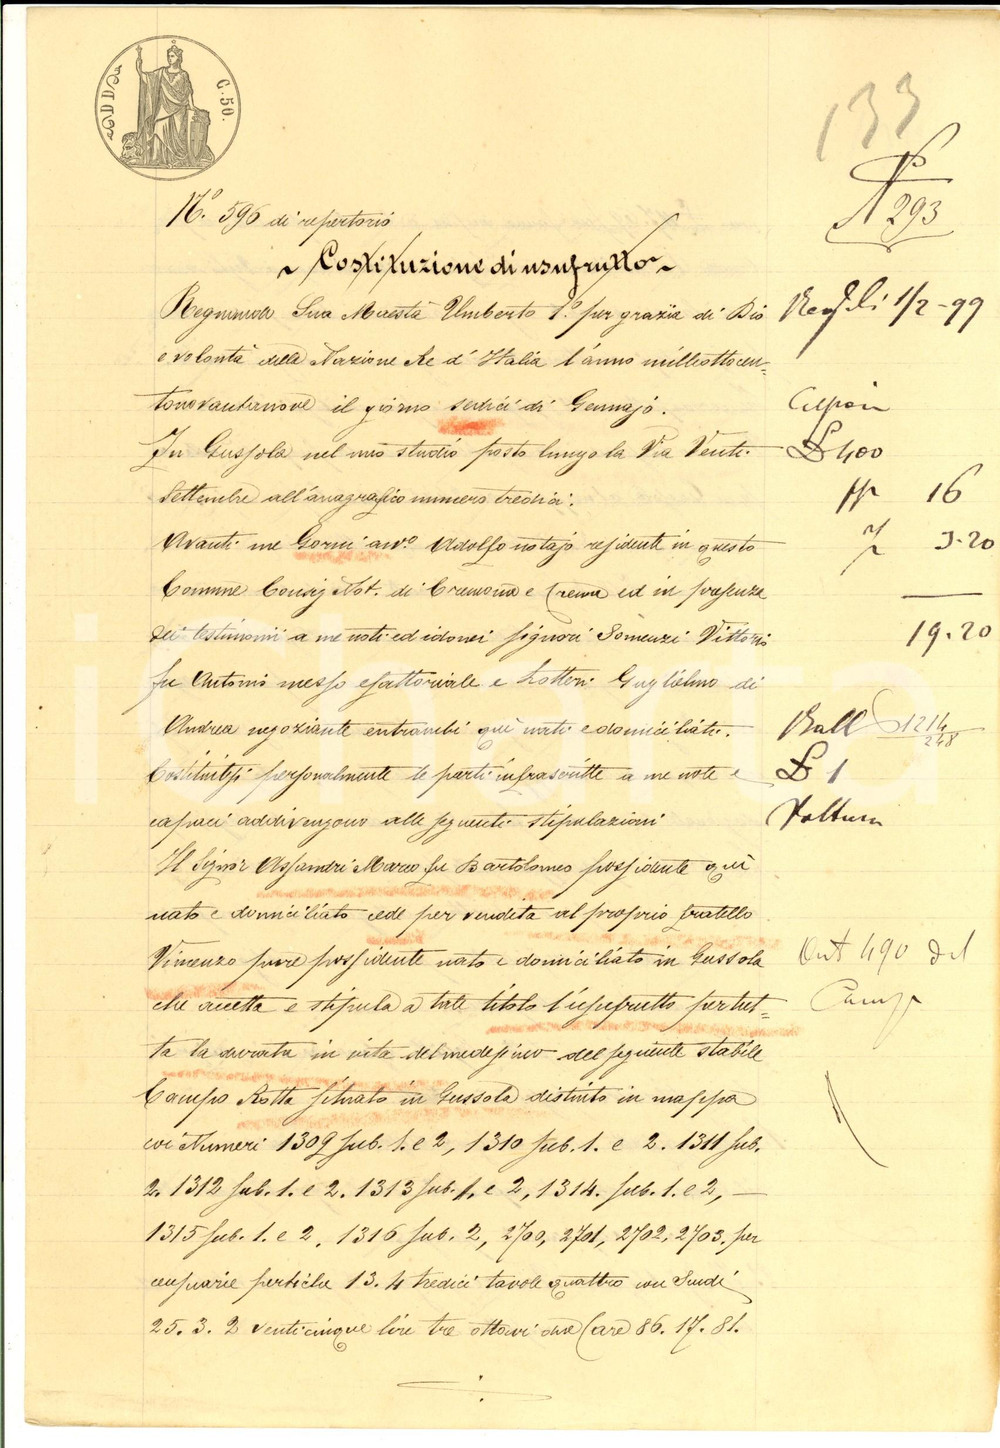 C. 50.
133
N° 293
N.° 596 di repertorio
Costituzione di usufrutto
Regnando Sua Maestà Umberto 1.° per grazia di Dio
e volontà della Nazione Re d'Italia l'anno milleottocen-
tonovantanove il giorno sedici di Gennajo.
In Gussola nel mio studio posto lungo la Via Venti
Settembre all'anagrafico numero tredici.
Avanti me Gorni avv.° Adolfo notajo residente in questo
Comune Consig. Not. di Cremona e Crema ed in presenza
dei testimonii a me noti ed idonei signori Somenzi Vittorio
fu Antonio messo esattoriale e Lottori Guglielmo di
Andrea negoziante entrambi quì nati e domiciliati.
Costituitesi personalmente le parti infrascritte a me note e
capaci addivengono alle seguenti stipulazioni
Il Signor Assandri Marco fu Bartolomeo possidente quì
nato e domiciliato cede per vendita al proprio fratello
Vincenzo pure possidente nato e domiciliato in Gussola
che accetta e stipula a tale titolo l'usufrutto per tut-
ta la durata in vita del medesimo del seguente stabile
Campo Rotta situato in Gussola distinto in mappa
coi Numeri 1309 sub. 1. e 2, 1310 sub. 1. e 2. 1311 sub.
2. 1312 sub. 1. e 2. 1313 sub. 1. e 2, 1314. sub. 1. e 2,
1315 sub. 1. e 2, 1316 sub. 2, 2700, 2701, 2702, 2703. per
censuarie pertiche 13. 4 tredici tavole quattro con Scudi
25. 3. 2 venticinque lire tre ottavi due (are 86. 17. 81.
1/2-99
£ 400
16
3.20
19.20
1214
248
£ 1
Voltura
Art 490 del